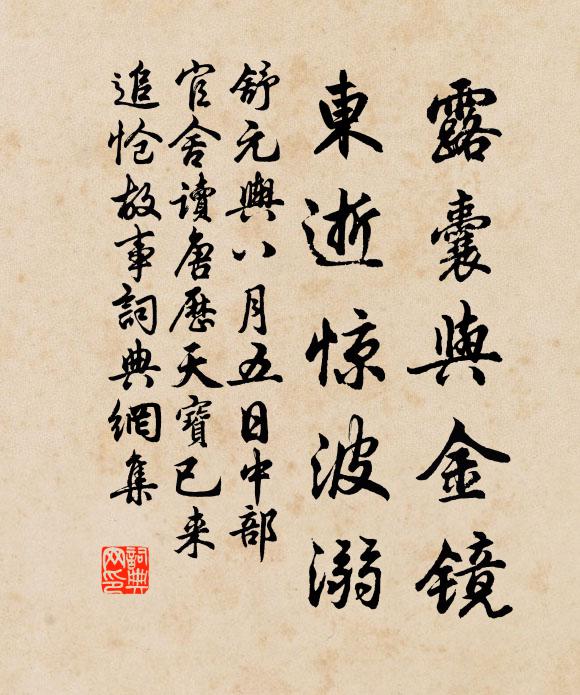 露囊與金镜
東逝惊波溺
舒元輿八月五日中部
官舍讀唐歷天寶已来
追怆故事詞典網集
詞典网印